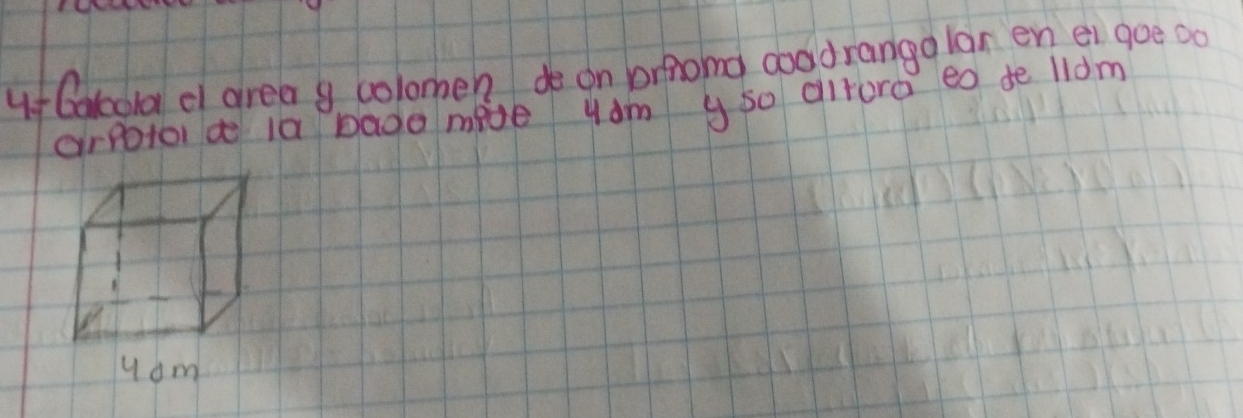 4.- Calcola el area y volomen de on prisma coadrangolar en el qoe so
aristoi de la base mide 4dm y so altora es de 11dm
4dm